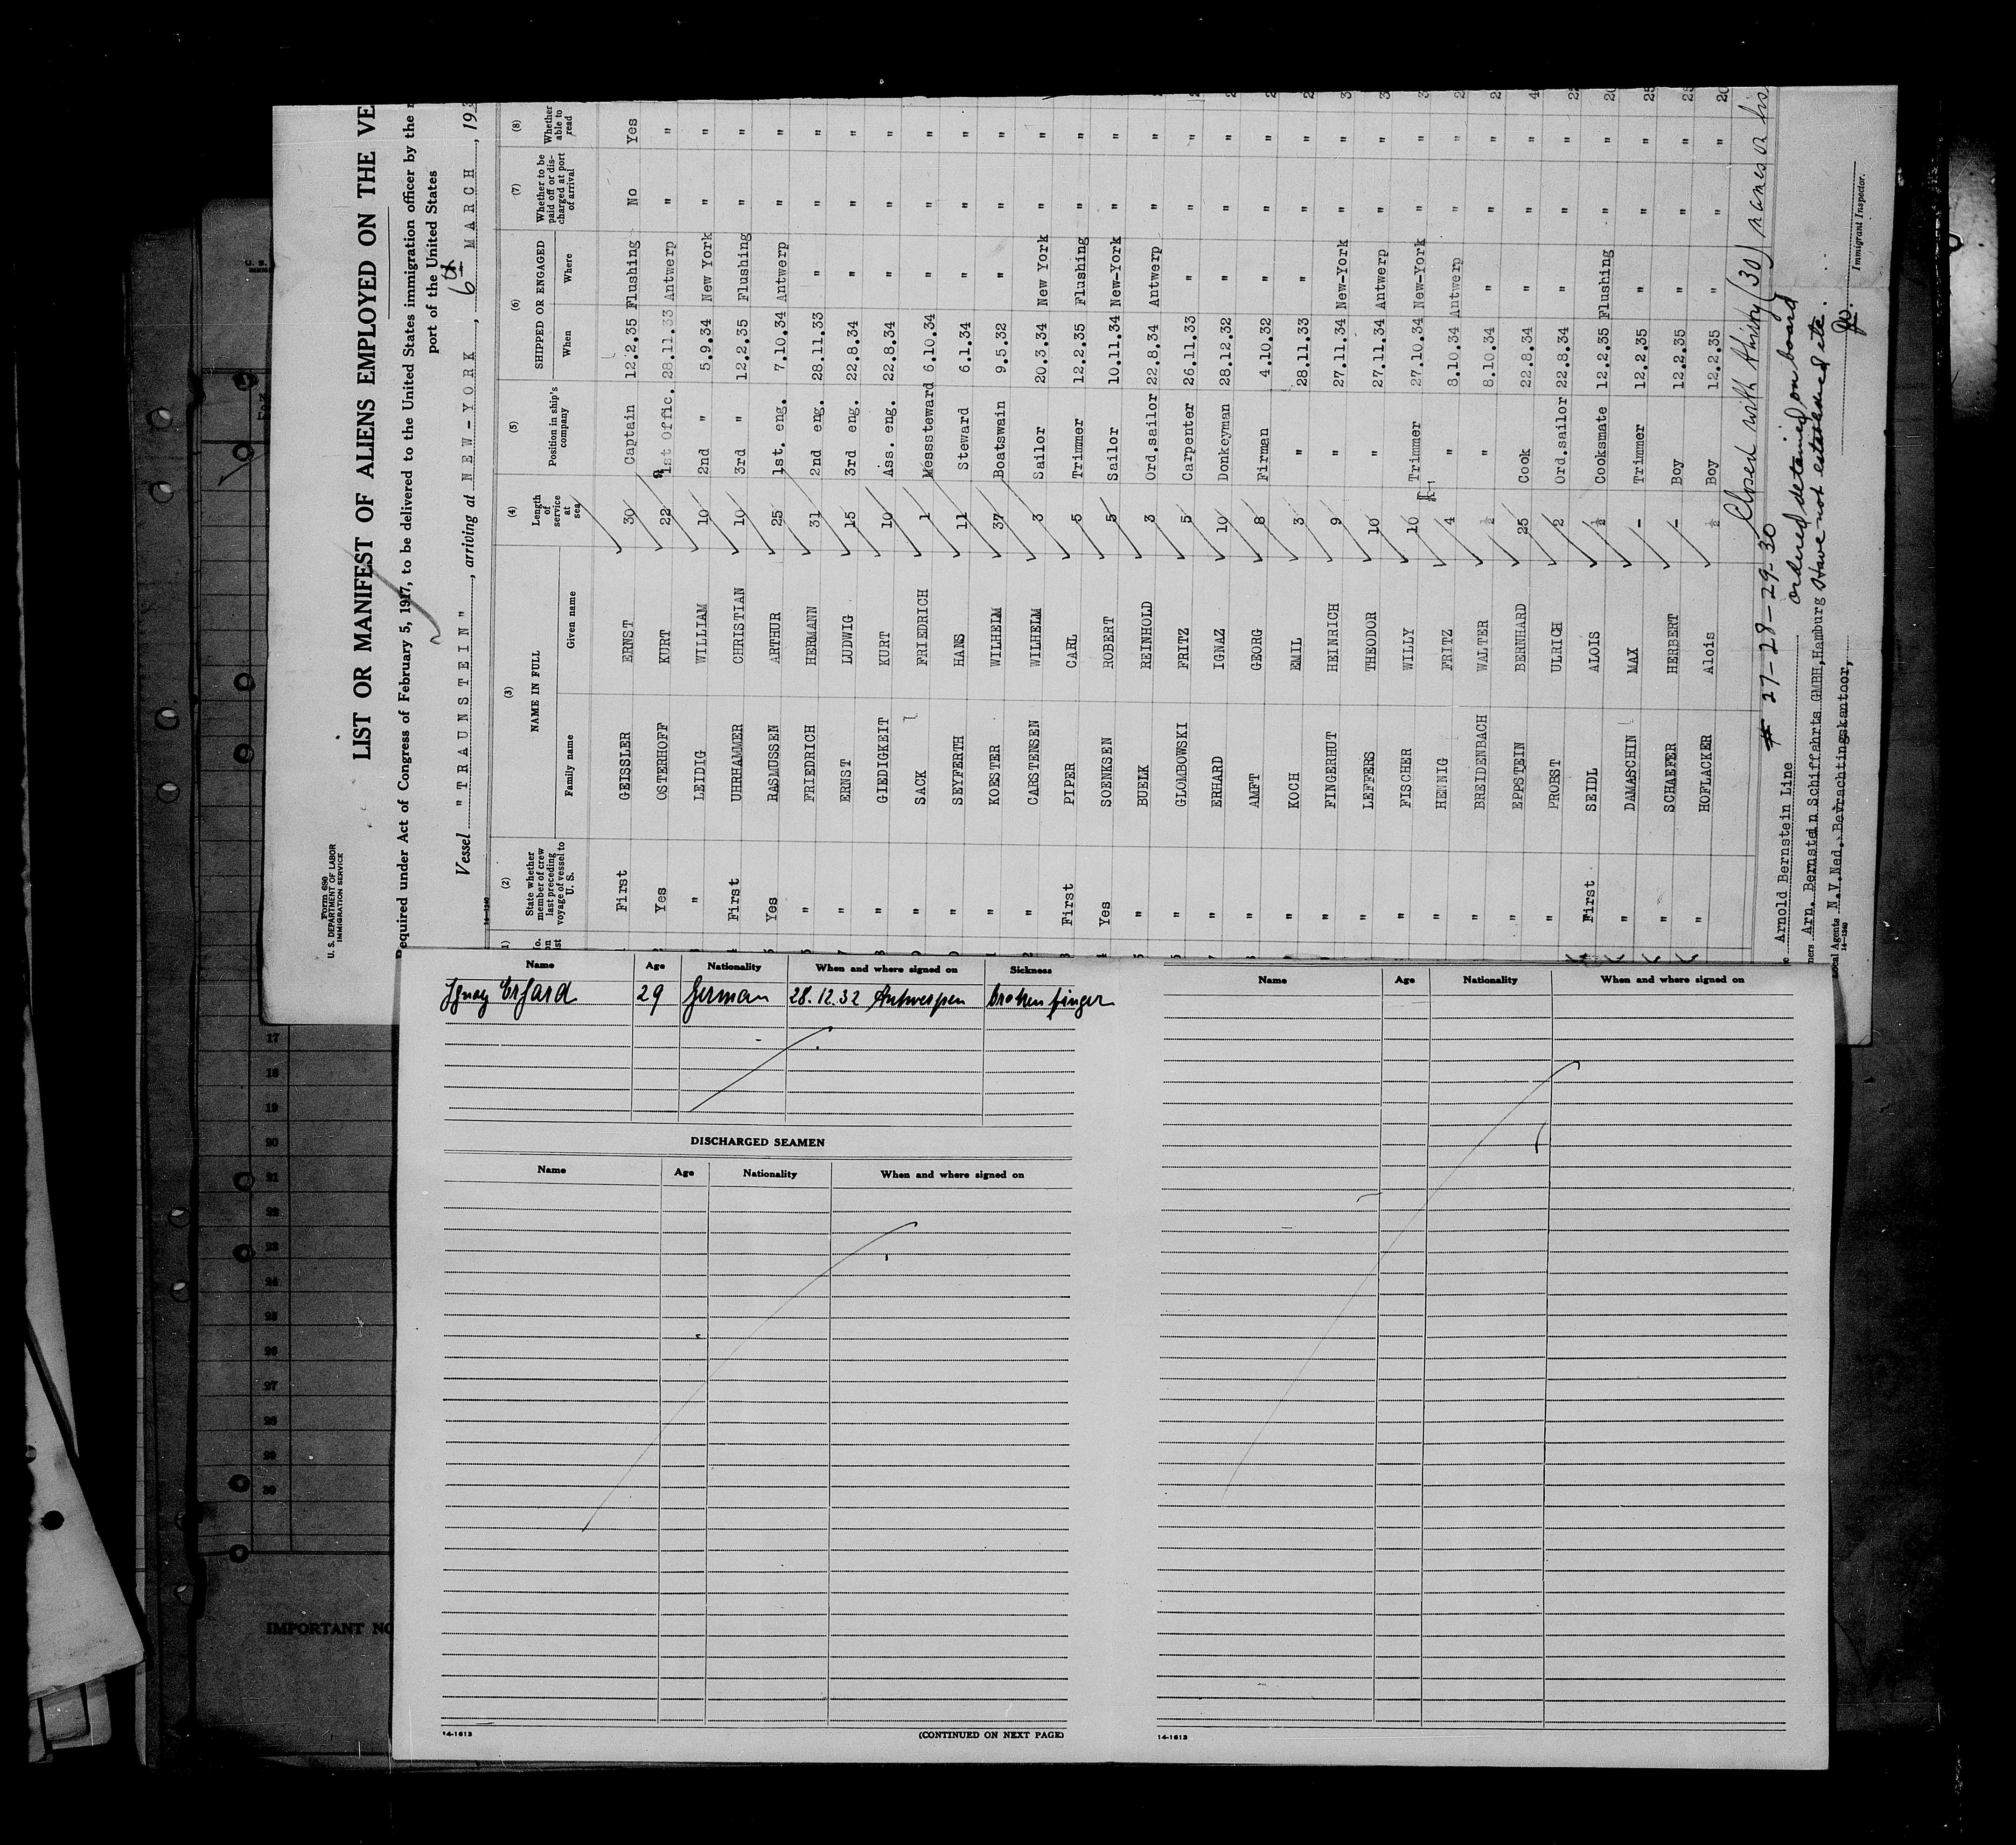 Form 680
U. S. DEPARTMENT OF LABOR
IMMIGRATION SERVICE
LIST OR MANIFEST OF ALIENS EMPLOYED ON THE VE
Required under Act of Congress of February 5, 1917, to be delivered to the United States immigration officer by the
port of the United States
Vessel "TRAUNSTEIN", arriving at NEW-YORK, 6th MARCH, 193
(2) (3) (4) (5) (6) (7) (8)
State whether member of crew last preceding voyage of vessel to U. S. NAME IN FULL Family name Given name Length of service at sea Position in ship's company SHIPPED OR ENGAGED When Where Whether to be paid off or discharged at port of arrival Whether able to read
First GEISSLER ERNST 30 Captain 12.2.35 Flushing No Yes
Yes OSTERHOFF KURT 22 1st Offic. 28.11.33 Antwerp " "
" LEIDIG WILLIAM 10 2nd " 5.9.34 New York " "
First UHRHAMMER CHRISTIAN 10 3rd " 12.2.35 Flushing " "
Yes RASMUSSEN ARTHUR 25 1st. eng. 7.10.34 Antwerp " "
" FRIEDRICH HERMANN 31 2nd eng. 28.11.33 " " "
" ERNST LUDWIG 15 3rd eng. 22.8.34 " " "
" GIEDIGKEIT KURT 10 Ass. eng. 22.8.34 " " "
" SACK FRIEDRICH 1 Messsteward 6.10.34 " " "
" SEYFERTH HANS 11 Steward 6.1.34 " " "
" KOESTER WILHELM 37 Boatswain 9.5.32 " " "
" CARSTENSEN WILHELM 3 Sailor 20.3.34 New York " "
First PIPER CARL 5 Trimmer 12.2.35 Flushing " "
Yes SOENKSEN ROBERT 5 Sailor 10.11.34 New-York " "
" BUELK REINHOLD 3 Ord.sailor 22.8.34 Antwerp " "
" GLOMBOWSKI FRITZ 5 Carpenter 26.11.33 " " "
" ERHARD IGNAZ 10 Donkeyman 28.12.32 " " "
" AMFT GEORG 8 Firman 4.10.32 " " "
" KOCH EMIL 3 " 28.11.33 " " "
" FINGERHUT HEINRICH 9 " 27.11.34 New-York " "
" LEFERS THEODOR 10 " 27.11.34 Antwerp " "
" FISCHER WILLY 10 Trimmer 27.10.34 New-York " "
" HENNIG FRITZ 4 " 8.10.34 Antwerp " "
" BREIDENBACH WALTER ½ " 8.10.34 " " "
" EPPSTEIN BERNHARD 25 Cook 22.8.34 " " "
" PROBST ULRICH 2 Ord.sailor 22.8.34 " " "
First SEIDL ALOIS ½ Cooksmate 12.2.35 Flushing " "
" DAMASCHIN MAX - Trimmer 12.2.35 " " "
" SCHAEFER HERBERT - Boy 12.2.35 " " "
" HOFLACKER Alois ½ Boy 12.2.35 " " "
Closed with thirty (30) names on
# 27-28-29-30
ordered detained on board
Have not established etc.
Arnold Bernstein Line
Arn. Bernstein Schiffahrts GMBH, Hamburg
Local Agents N.V.Ned. Bevrachtingskantoor,
14-1240
Immigrant Inspector.
Name Age Nationality When and where signed on Sickness
Ignaz Erhard 29 German 28.12.32 Antwerpen broken finger
DISCHARGED SEAMEN
Name Age Nationality When and where signed on
14-1613
(CONTINUED ON NEXT PAGE)
Name Age Nationality When and where signed on
14-1613
17
18
19
20
21
22
23
24
25
26
27
28
29
30
IMPORTANT NO